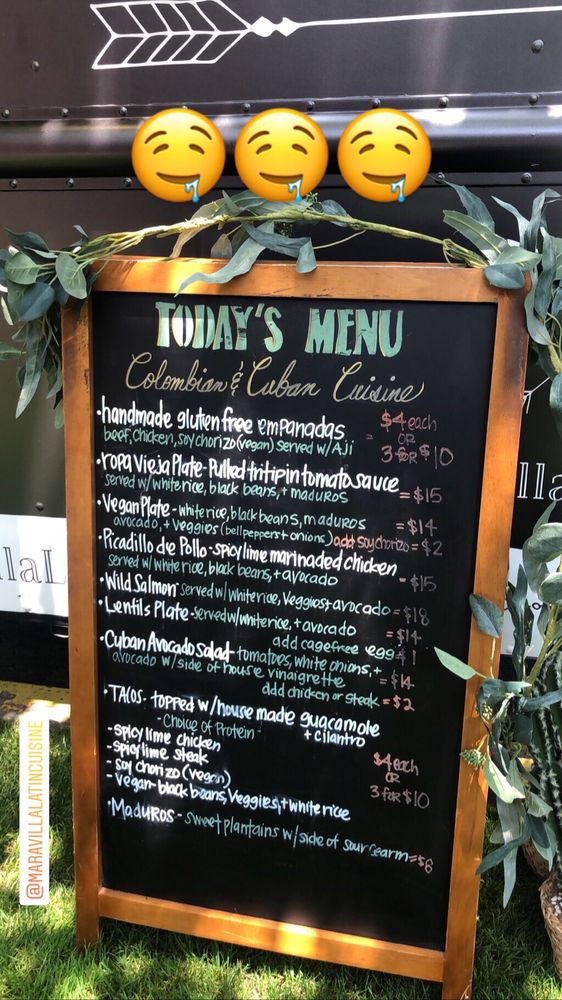 TODAY'S MENU
Colombian & Cuban Cuisine
•handmade gluten free empanadas
beef, chicken, soy chorizo (vegan) served w/ Aji = $4 each OR 3 FOR $10
•ropa Vieja Plate - Pulled tritip in tomato sauce
served w/ white rice, black beans, + maduros = $15
•Vegan Plate - white rice, black beans, maduros = $14
avocado, + Veggies (bell peppers + onions) add soy chorizo = $2
•Picadillo de Pollo - spicy lime marinaded chicken
served w/ white rice, black beans, + avocado = $15
•Wild Salmon - served w/ white rice, Veggies + avocado = $18
•Lentils Plate - served w/ white rice, + avocado = $14
add cage free egg $1
•Cuban Avocado Salad - tomatoes, white onions, +
avocado w/ side of house vinaigrette = $14
add chicken or steak = $2
•TACOS - topped w/ house made guacamole
+ cilantro
- Choice of Protein -
- spicy lime chicken
- spicy lime steak
- soy chorizo (vegan)
- vegan - black beans, Veggies, + white rice
$4 each
OR
3 FOR $10
•Maduros - sweet plantains w/ side of sour cearm = $6
@MARAVILLALATINCUISINE
llaL
lla